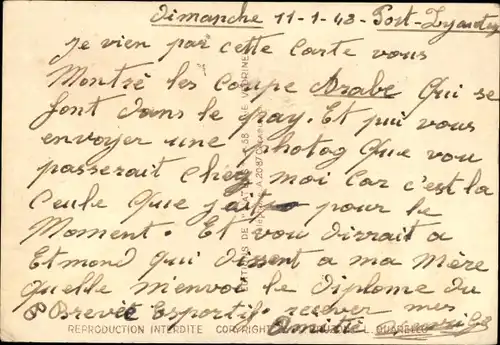 Dimanche 11-1-43 - Port-Lyautey
je vien par cette Carte vous
Montré les Coupe Arabe qui se
font dans le pay. Et pui vous
envoyer une photog que vou
passerait chez moi Car c'est la
Ceule que jait pour le
Moment. Et vou dirrait a
Etmond qui disent a ma Mère
quelle m'envoi le diplome du
Brevée Esportif. recever mes
Amitié
REPRODUCTION INTERDITE COPYRIGHT